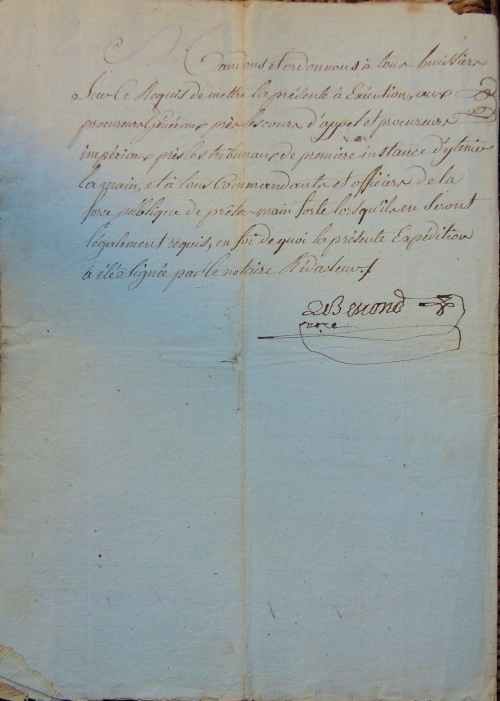 Mandons et ordonnons à tous huissiers
Sur ce Requis de mettre la présente à Exécution, aux
procureurs Généraux près les cours d'appel et procureurs
impériaux près les tribunaux de première instance d'ytenir
la main, et à tous Commandants et officiers de la
force publique de prêter main forte lorsqu'ils en seront
légalement requis, en foi de quoi la présente Expédition
à été Signée par le notaire Rédacteur ./.